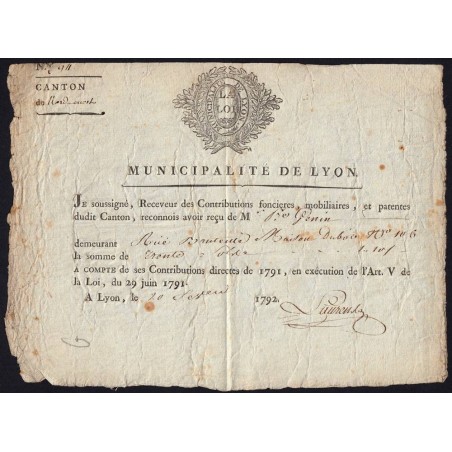 N.º 94
CANTON
du Nord-ouest
LA
LOI
MUNICIPALITÉ DE LYON.
JE soussigné, Receveur des Contributions foncieres, mobiliaires, et patentes
dudit Canton, reconnois avoir reçu de M Genin
demeurant Rüe Maison Dubois N.º
la somme de
A COMPTE de ses Contributions directes de 1791, en exécution de l'Art. V de
la Loi, du 29 juin 1791.
A Lyon, le 20 1792.
Laurens